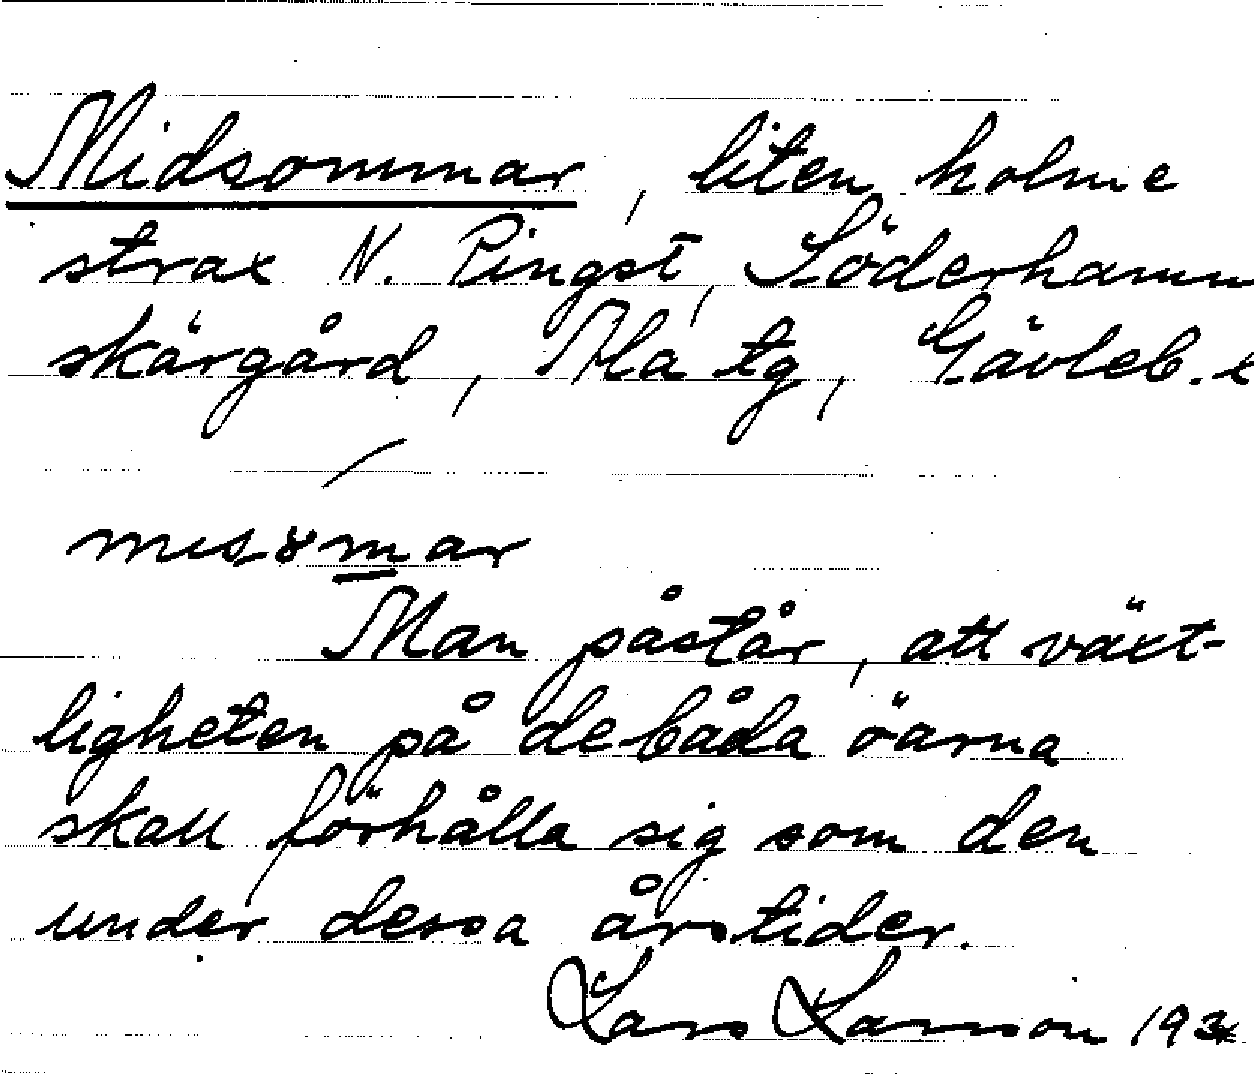 Midsommar, liten holme
strax N. Pingst, Söderhamn
skärgård, Ala tg, Gävleb.
Man påstår, att växt-
ligheten på de båda öarna
skall förhålla sig som den
under dessa årstider.
Lars Larsson